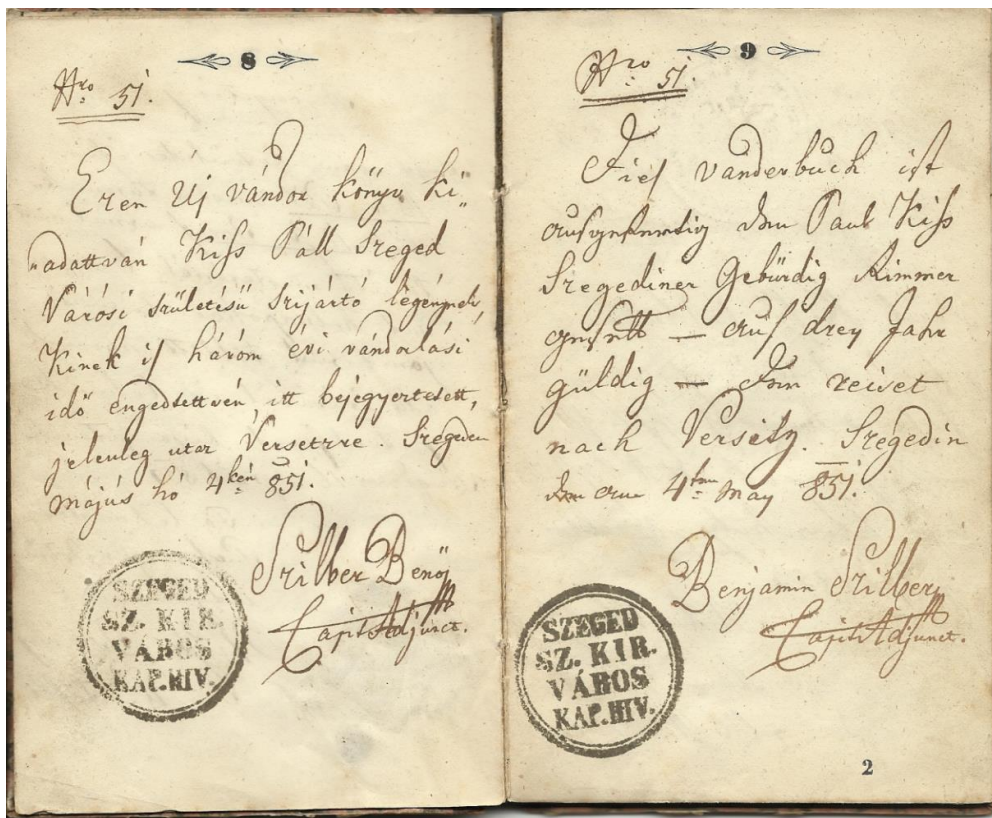 8
Nro 51.
Ezen Új vándor könyv ki„
„adattván Kiss Páll Szeged
Várósi születésű szijártó legénynek
Kinek is három évi vándorlási
idő engedtettvén, itt bejegyertetett,
jelenleg utaz Versetzre. Szegeden
május hó 4kén 851.
Szilber Benőj
Capit Adjunct.
SZEGED
SZ. KIR.
VÁROS
KAP. HIV.
9
Nro 51.
Dies vanderbuch ist
ausgefertig dem Paul Kiss
Szegediner Gebürdig Rimmer
gesell — auf drey Jahr
güldig — Dem reiset
nach Versetz. Szegedin
am 4ten May 851.
Benjamin Szilber
Capit Adjunct.
SZEGED
SZ. KIR.
VÁROS
KAP. HIV.
2